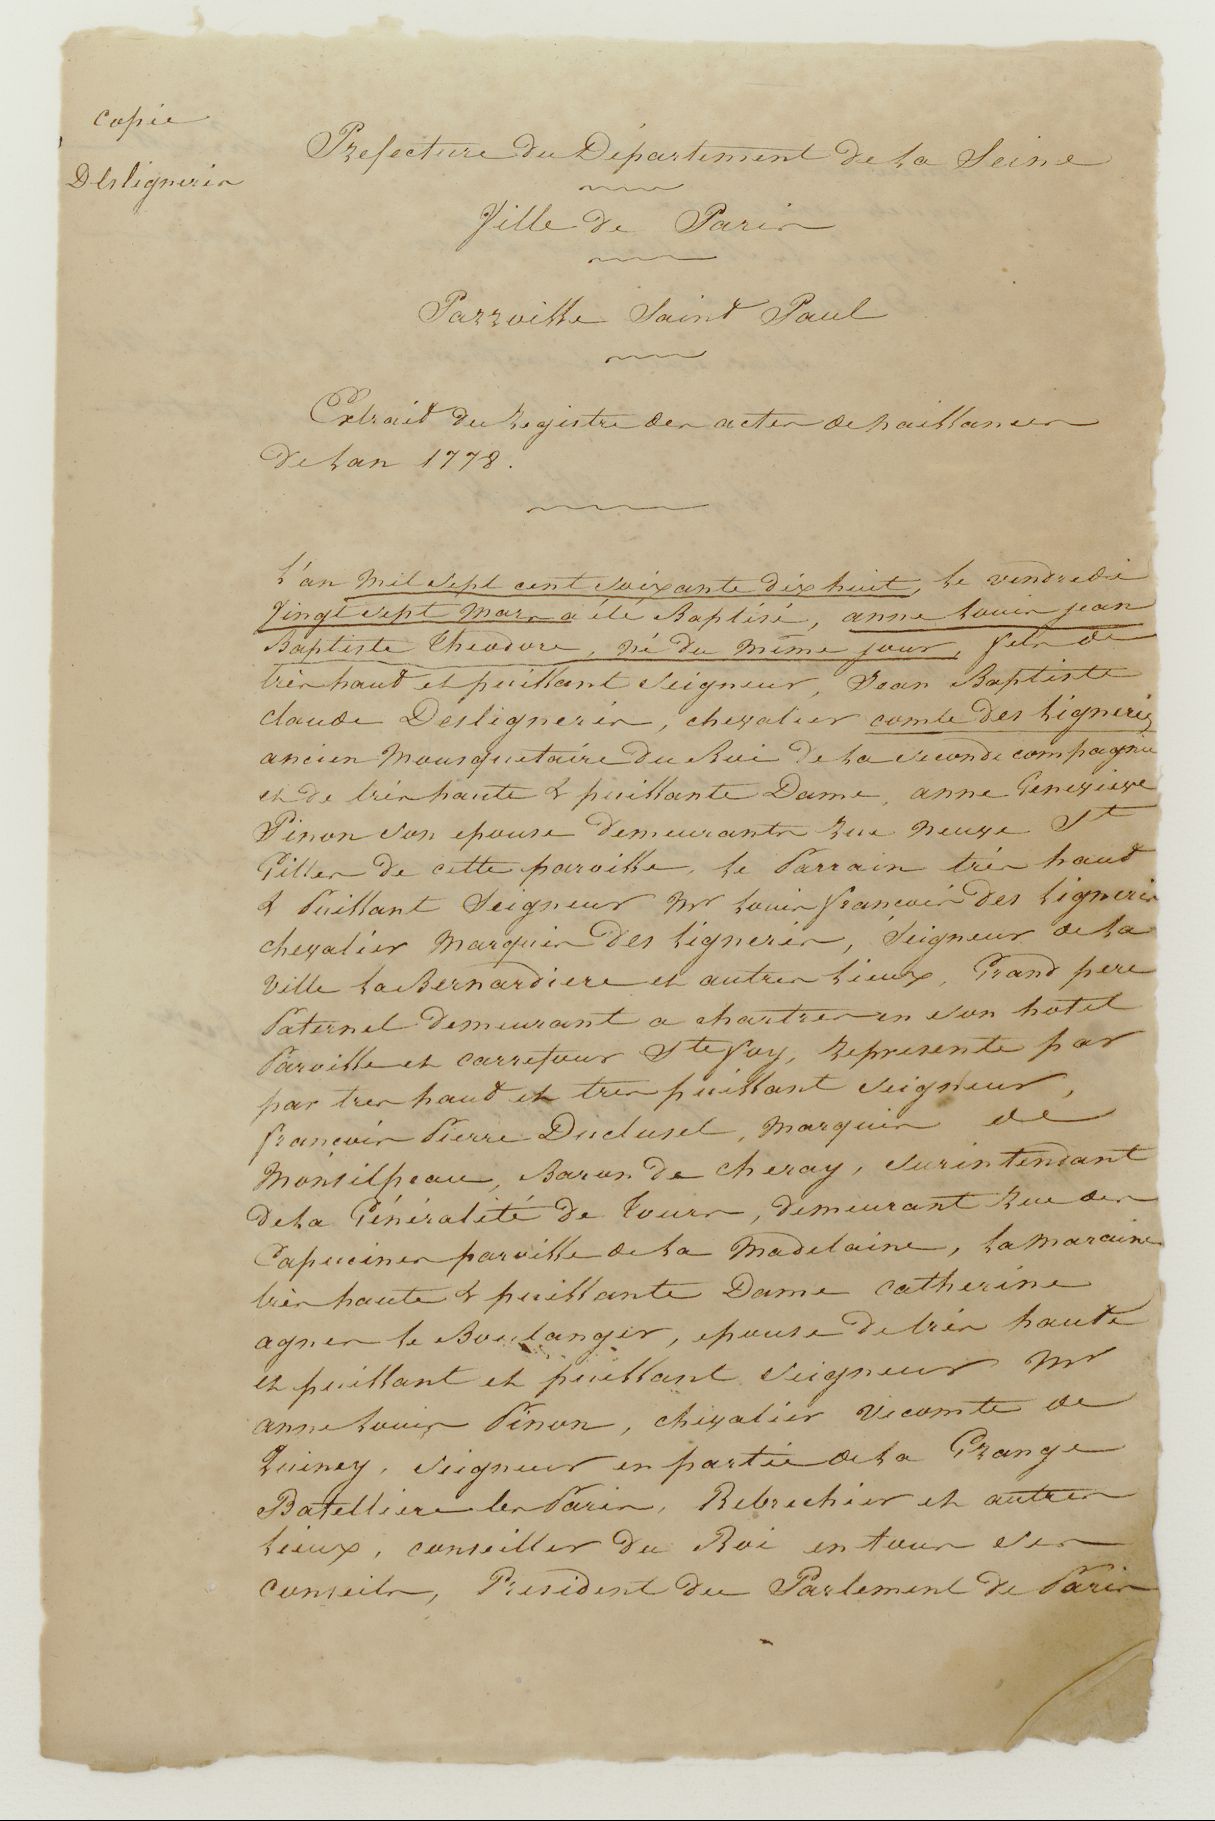 Copie
Desligneris
Prefecture du Département de la Seine
Ville de Paris
Parroisse Saint Paul
Extrait du Registre des actes de naissances
de l'an 1778.
L'an mil sept cent soixante dix huit, le vendredi
vingt sept mars a été Baptisé, anne Louis jean
Baptiste Theodore, né du même jour, fils de
très haut et puissant seigneur, Jean Baptiste
claude Desligneris, chevalier comte Des Ligneris
ancien Mousquetaire du Roi de la seconde compagnie
et de très haute & puissante Dame, anne Genevieve
Pinon son epouse demeurants Rue neuve St
Gilles de cette paroisse, le Parrain très haut
& Puissant Seigneur Mr Louis François Des Ligneris
chevalier Marquis Des Ligneris, Seigneur de la
ville la Bernardiere et autres Lieux, Grand pere
Paternel demeurant a chartres en son hotel
Paroisse et carrefour Ste foy, Represente par
par tres haut et tres puissant seigneur,
françois Pierre Duclusel, Marquis de
Monsilpeau, Baron de cheray, surintendant
de la Généralité de Tours, demeurant Rue des
Capucines paroisse de la Madelaine, la maraine
très haute & puissante Dame catherine
agnes le Boulanger, epouse de très haute
et puissant et puissant seigneur Mr
anne Louis Pinon, chevalier vicomte de
Quincy, seigneur en partie de la Grange
Batelliere les Paris, Rebrechier et autres
lieux, conseiller du Roi en tous ses
conseils, President du Parlement de Paris